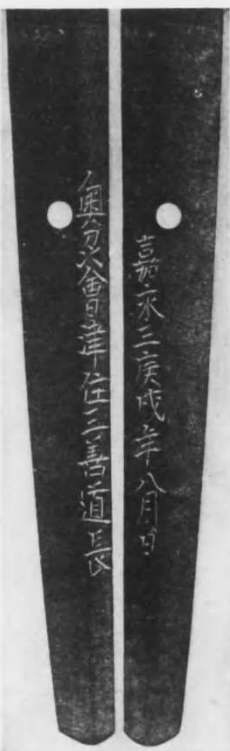 嘉永三庚戌年八月日
奥刕會津住三善道長